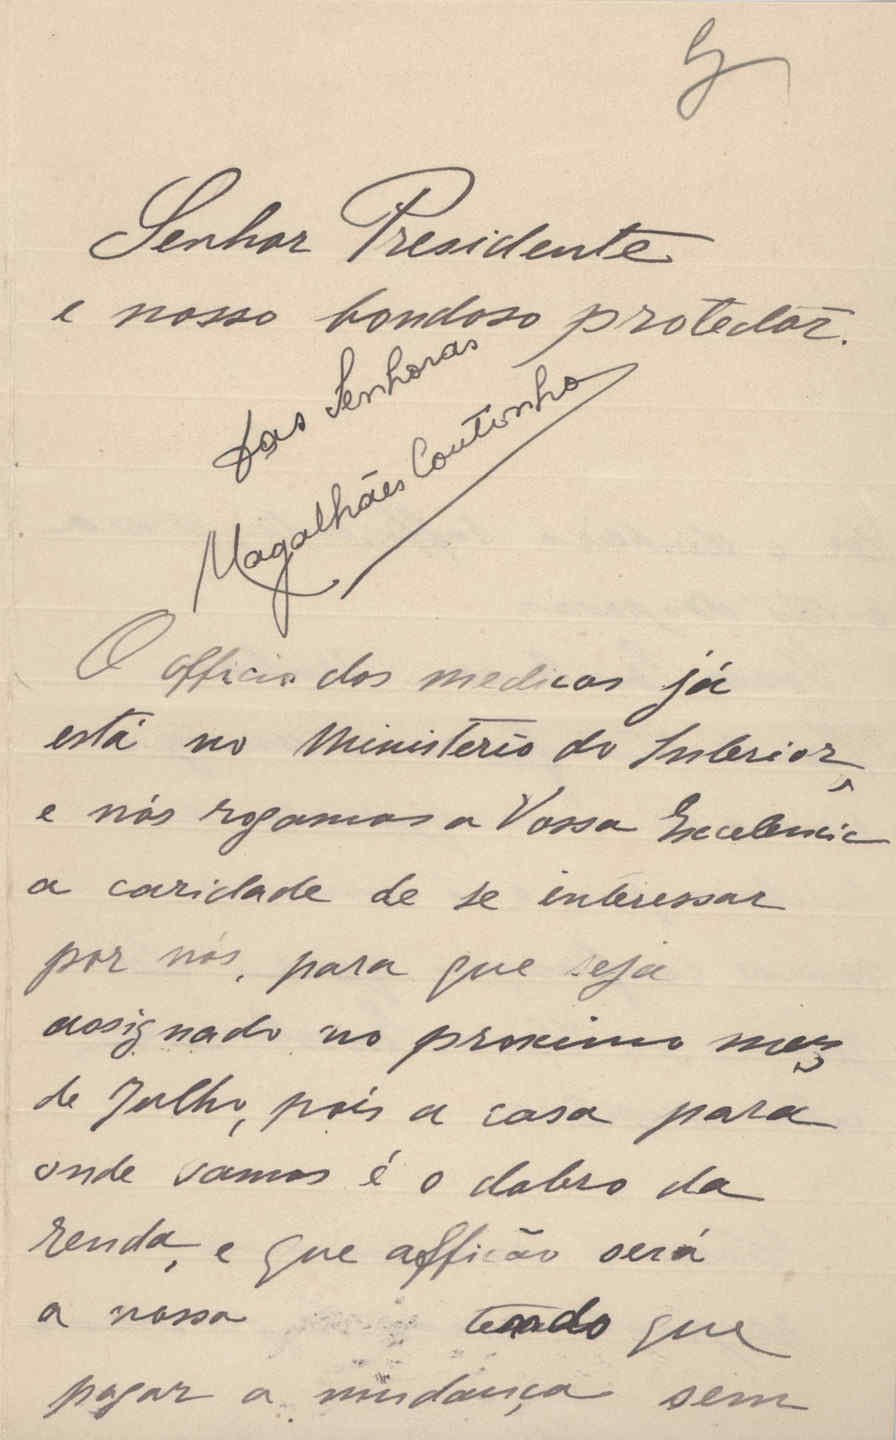 5
Senhor Presidente
e nosso bondoso protector.
das Senhoras
Magalhães Coutinho
O officio dos medicos já
está no Ministerio do Interior,
e nós rogamos a Vossa Excelencia
a caridade de se interessar
por nós, para que seja
assignado no proximo mes
de Julho, pois a casa para
onde vamos é o dobro da
renda, e que afflicão será
a nossa tendo que
pagar a mudança sem